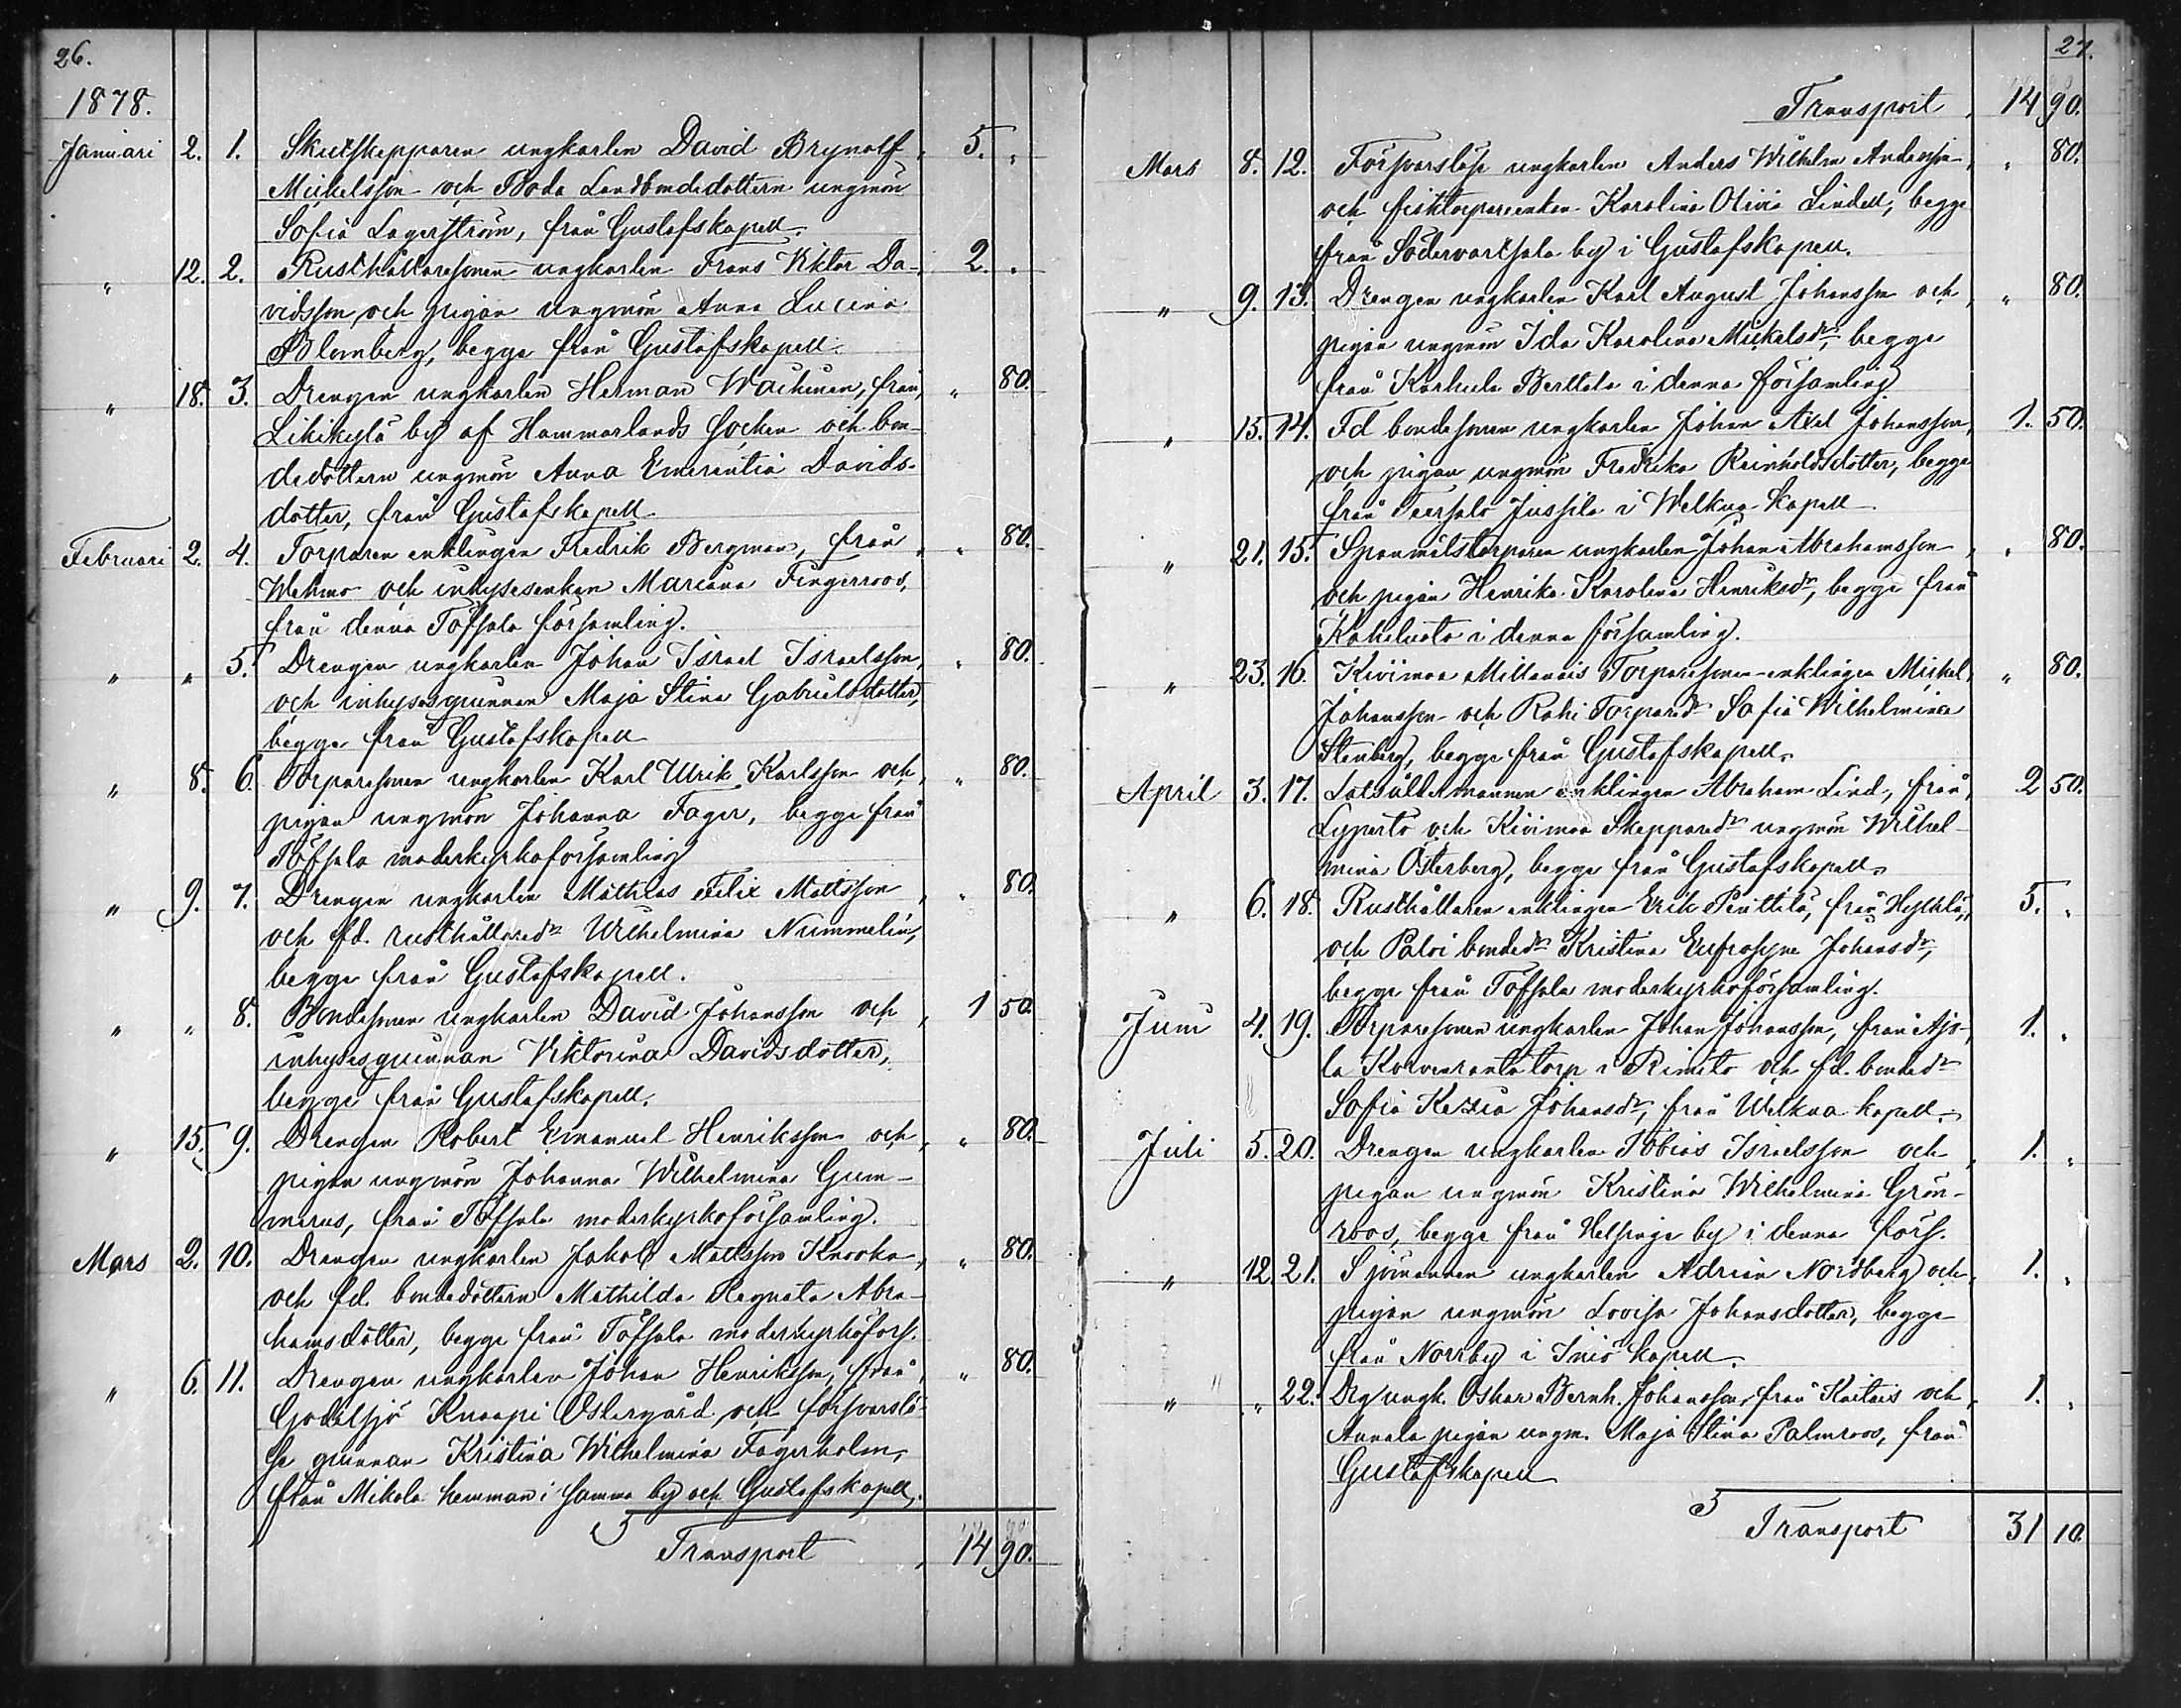 26.
1878.
Januari 2. 1. Skutskepparen ungkarlen David Brynolf 5. "
Mickelsson och Boda Landbondedottern ungmön
Sofia Lagerström, från Gustafskapell.
" 12. 2. Rusthållaresonen ungkarlen Frans Viktor Da- 2. "
vidsson och pigan ungmön Anna Lucina
Blomberg, begge från Gustafskapell.
" 18. 3. Drengen ungkarlen Herman Wackman, från " 80.
by af Hammarlands socken och bon-
dedottern ungmön Anna Emerentia Davids-
dotter, från Gustafskapell.
Februari 2. 4. Torparen enklingen Fredrik Bergman, från " 80.
Wehmo och inhysesenkan Mariana Fingerroos,
från denna Töfsala församling.
" " 5. Drengen ungkarlen Johan Israel Israelsson, " 80.
och inhysesqvinnan Maja Stina Gabrielsdotter,
begge från Gustafskapell
" 8. 6. Torparesonen ungkarlen Karl Ulrik Karlsson och " 80.
pigan ungmön Johanna Fager, begge från
Töfsala moderkyrkoförsamling
" 9. 7. Drengen ungkarlen Mathias Felix Mattsson " 80.
och fd. rusthållaredr Wilhelmina Nummelin,
begge från Gustafskapell.
" " 8. Bondesonen ungkarlen David Johansson och 1 50.
inhysesqvinnan Viktorina Davidsdotter,
begge från Gustafskapell.
" 15. 9. Drengen Robert Emanuel Henriksson och " 80.
pigan ungmön Johanna Wilhelmina Gum-
merus, från Töfsala moderkyrkoförsamling.
Mars 2. 10. Drengen ungkarlen Jakob Mattsson Knooka " 80.
och fd. bondedottern Mathilda Regnata Abra-
hamsdotter, begge från Töfsala moderkyrkoförs.
" 6. 11. Drengen ungkarlen Johan Henriksson, från " 80.
Knaapi Östergård och försvarslö-
se qvinnan Kristina Wilhelmina Fagerholm,
från Mikola hemman i samma by och Gustafskapell.
Transport 14 90.
27.
Transport 14 90.
Mars 8. 12. Försvarslöse ungkarlen Anders Wilhelm Andersson " 80.
och fisktorpareenkan Karolina Olivia Lindell, begge
från Södervartsala by i Gustafskapell.
" 9. 13. Drengen ungkarlen Karl August Johansson och " 80.
pigan ungmön Ida Karolina Mickelsdr, begge
från Karhula Berttala i denna församling
" 15. 14. Fd bondesonen ungkarlen Johan Axel Johansson, 1. 50.
och pigan ungmön Fredrika Reinholdsdotter, begge
från Teersalo Jussila i Welkua kapell
" 21. 15. Spanmålstorparen ungkarlen Johan Abrahamsson " 80.
och pigan Henrika Karolina Henriksdr, begge från
Kahiluoto i denna församling.
" 23. 16. Kivimaa Millanais Torparesonen enklingen Mickel " 80.
Johansson och Rahi Torparedr Sofia Wilhelmina
Stenberg, begge från Gustafskapell.
April 3. 17. Lotsåldermannen enklingen Abraham Lind, från 2 50.
Lypertö och Kivimaa Skepparedr ungmön Wilhel-
mina Österberg, begge från Gustafskapell.
" 6. 18. Rusthållaren enklingen Erik Penttilä, från 5. "
och Paloi bondedr Kristina Eufrosyne Johansdr,
begge från Töfsala moderkyrkoförsamling.
Juni 4. 19. Torparesonen ungkarlen Johan Johansson, från Ajo- 1. "
la Korvenranta torp i Rimito och fd. bondedr
Sofia Kezia Johansdr, från Welkua kapell.
Juli 5. 20. Drengen ungkarlen Tobias Israelsson och 1. "
pigan ungmön Kristina Wilhelmina Grön-
roos, begge från Helsinge by i denna förs.
" 12. 21. Sjömannen ungkarlen Adrian Nordberg och 1. "
pigan ungmön Lovisa Johansdotter, begge
från Norrby i Iniö kapell.
" " 22. Drg ungk. Oskar Bernh. Johansson, från Kaitais och 1. "
Annala pigan ungm. Maja Stina Palmroos, från
Gustafskapell
Transport 31 10.